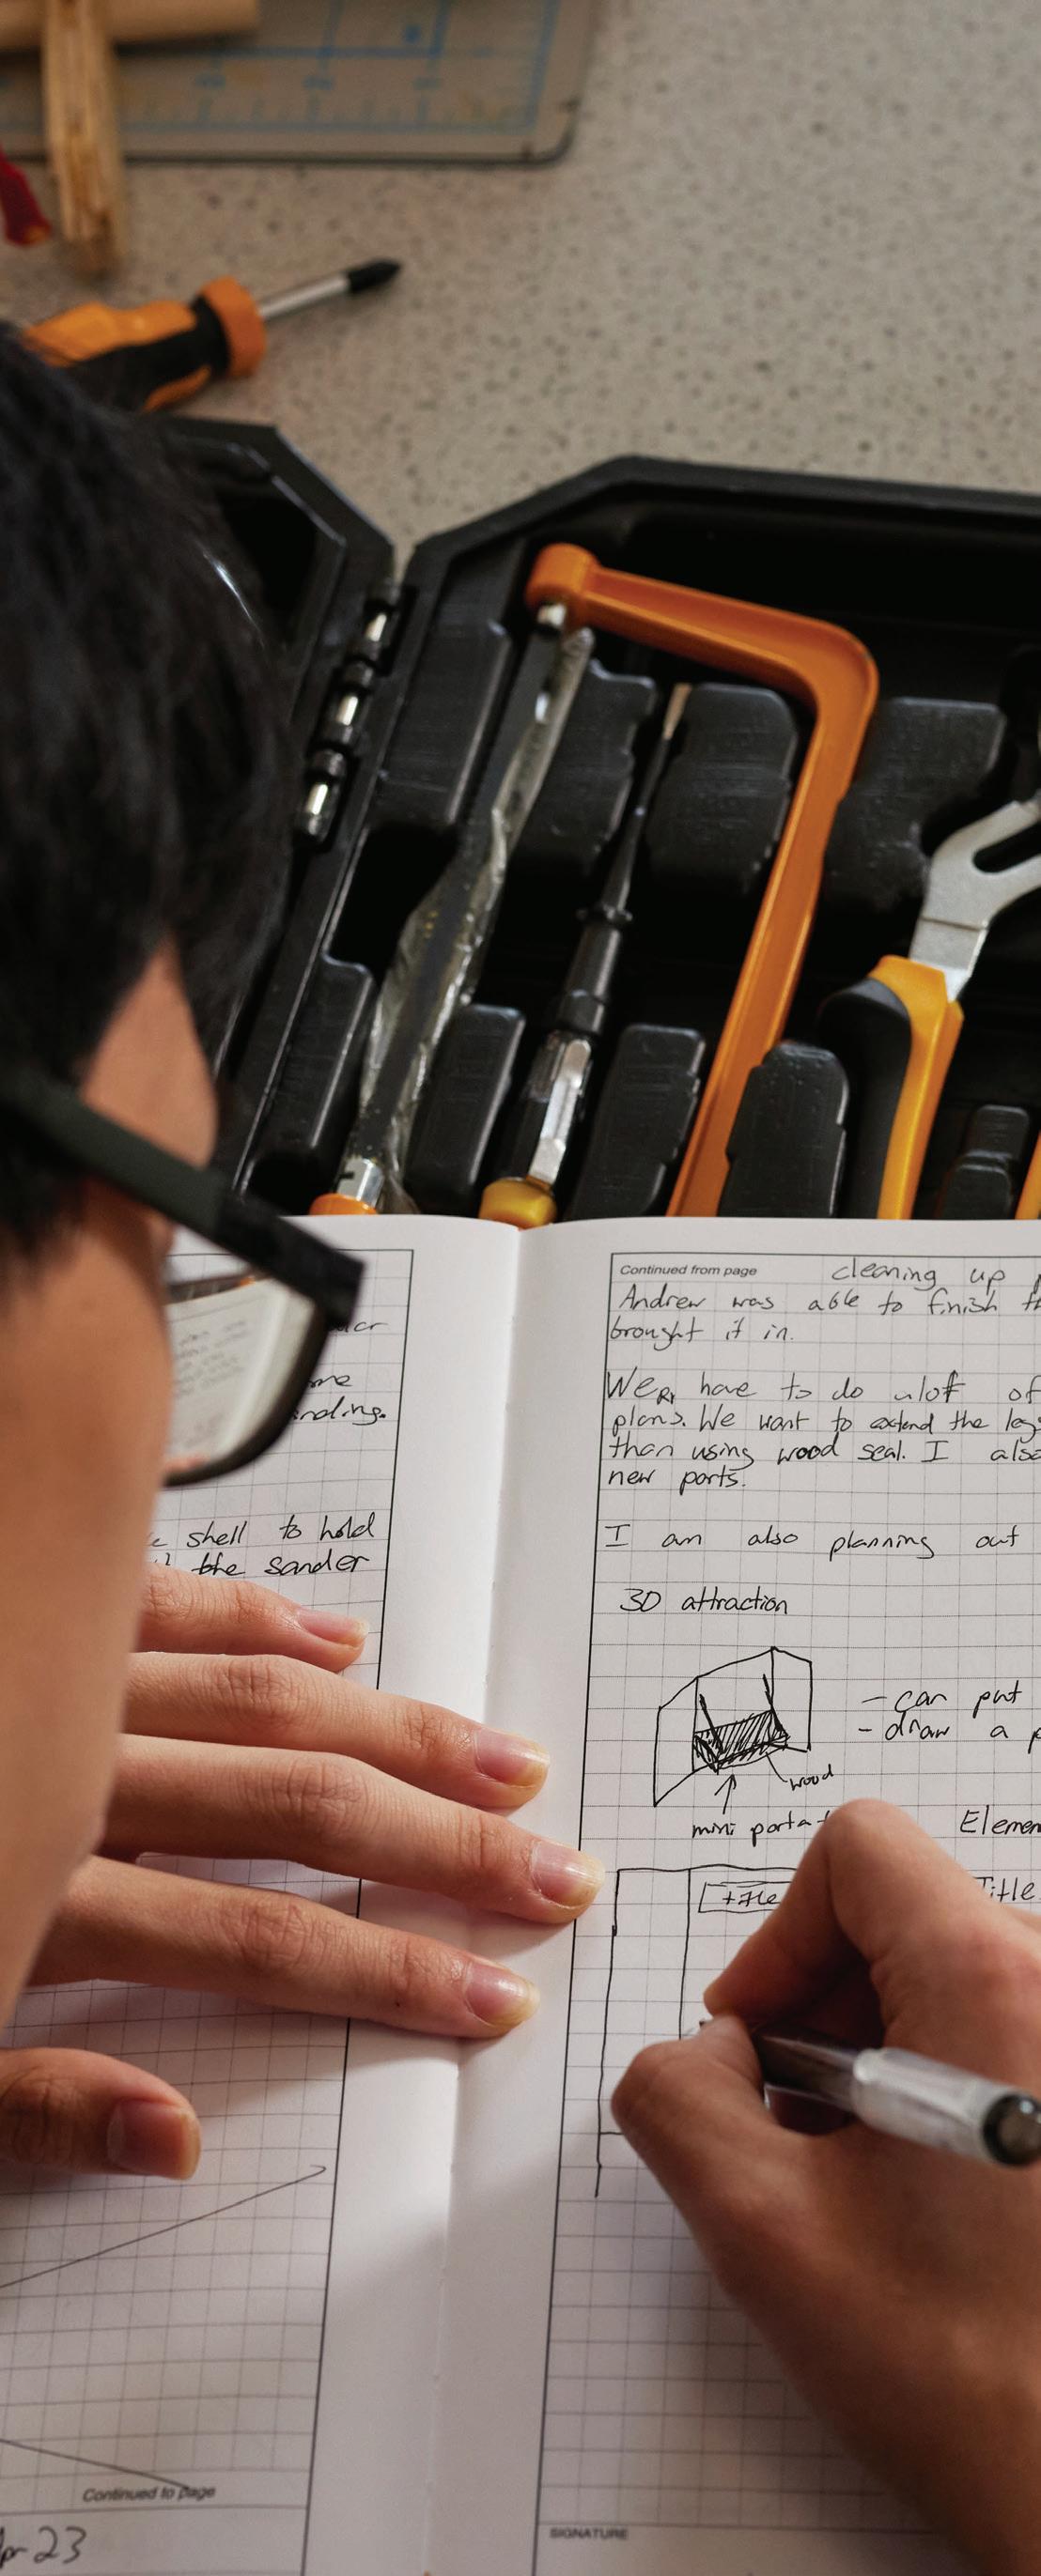 shell to hold
the sander
Continued to page
23
Continued from page cleaning up
Andrew was able to finish
brought it in.
We have to do alot of
plans. We want to extend the
than using wood seal. I
new ports.
I am also planning out
3D attraction
- can put
- draw a
wood
mini
title
Title
SIGNATURE